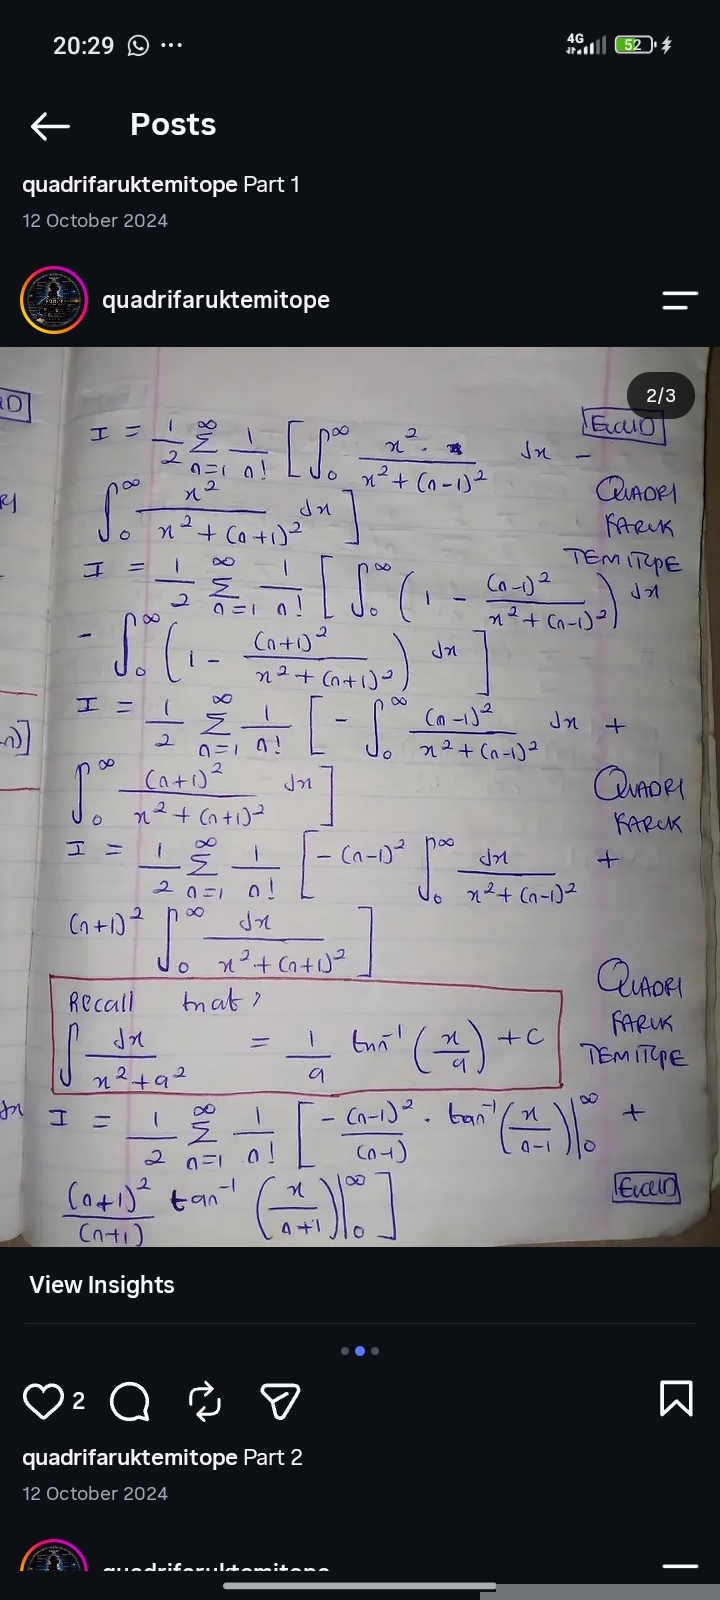 20:29 ...
4G 52
Posts
quadrifaruktemitope Part 1
12 October 2024
quadrifaruktemitope
2/3
I = 1/2 ∑_{n=1}^{∞} 1/n! [ ∫_0^∞ x²·/(x² + (n-1)²) dx -
EUCLID
∫_0^∞ x²/(x² + (n+1)²) dx ]
QUADRI
FARUK
TEMITOPE
I = 1/2 ∑_{n=1}^{∞} 1/n! [ ∫_0^∞ ( 1 - (n-1)²/(x² + (n-1)²) ) dx
- ∫_0^∞ ( 1 - (n+1)²/(x² + (n+1)²) ) dx ]
I = 1/2 ∑_{n=1}^{∞} 1/n! [ - ∫_0^∞ (n-1)²/(x² + (n-1)²) dx +
∫_0^∞ (n+1)²/(x² + (n+1)²) dx ]
QUADRI
FARUK
I = 1/2 ∑_{n=1}^{∞} 1/n! [ - (n-1)² ∫_0^∞ dx/(x² + (n-1)²) +
(n+1)² ∫_0^∞ dx/(x² + (n+1)²) ]
QUADRI
FARUK
TEMITOPE
Recall that,
∫ dx/(x² + a²) = 1/a tan⁻¹ (x/a) + C
dx
I = 1/2 ∑_{n=1}^{∞} 1/n! [ -(n-1)²/(n-1) · tan⁻¹ (x/(n-1)) |_0^∞ +
(n+1)²/(n+1) tan⁻¹ (x/(n+1)) |_0^∞ ]
EUCLID
View Insights
2
quadrifaruktemitope Part 2
12 October 2024
quadrifaruktemitope